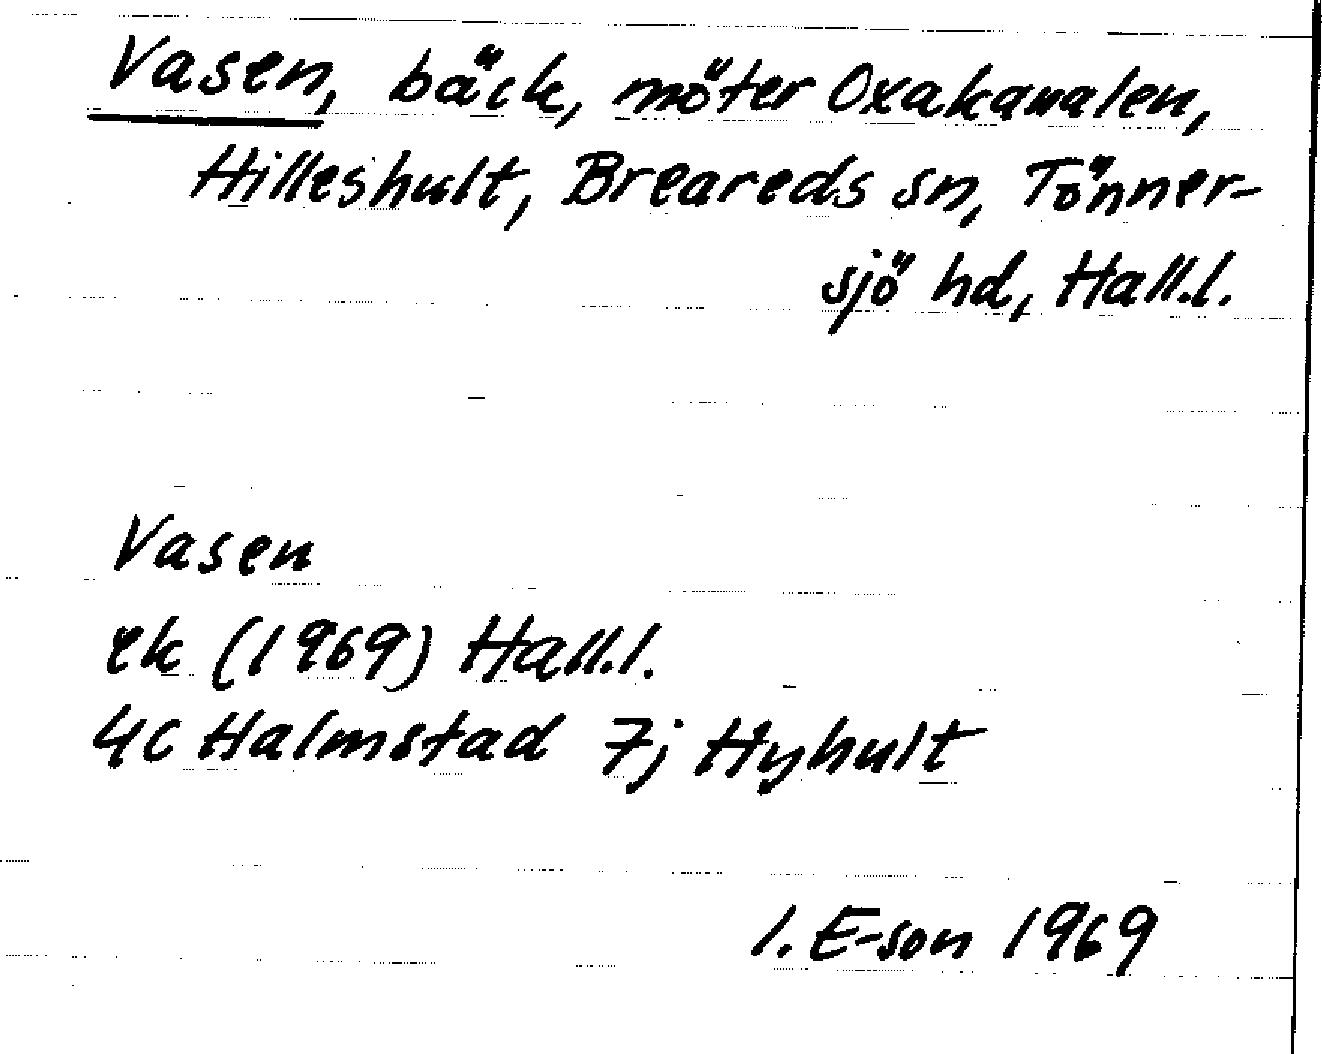 Vasen, bäck, möter Oxakanalen,
Hilleshult, Breareds sn, Tönner-
sjö hd, Hall.l.
Vasen
ek (1969) Hall.l.
4C Halmstad 7j Hyhult
I. E-son 1969